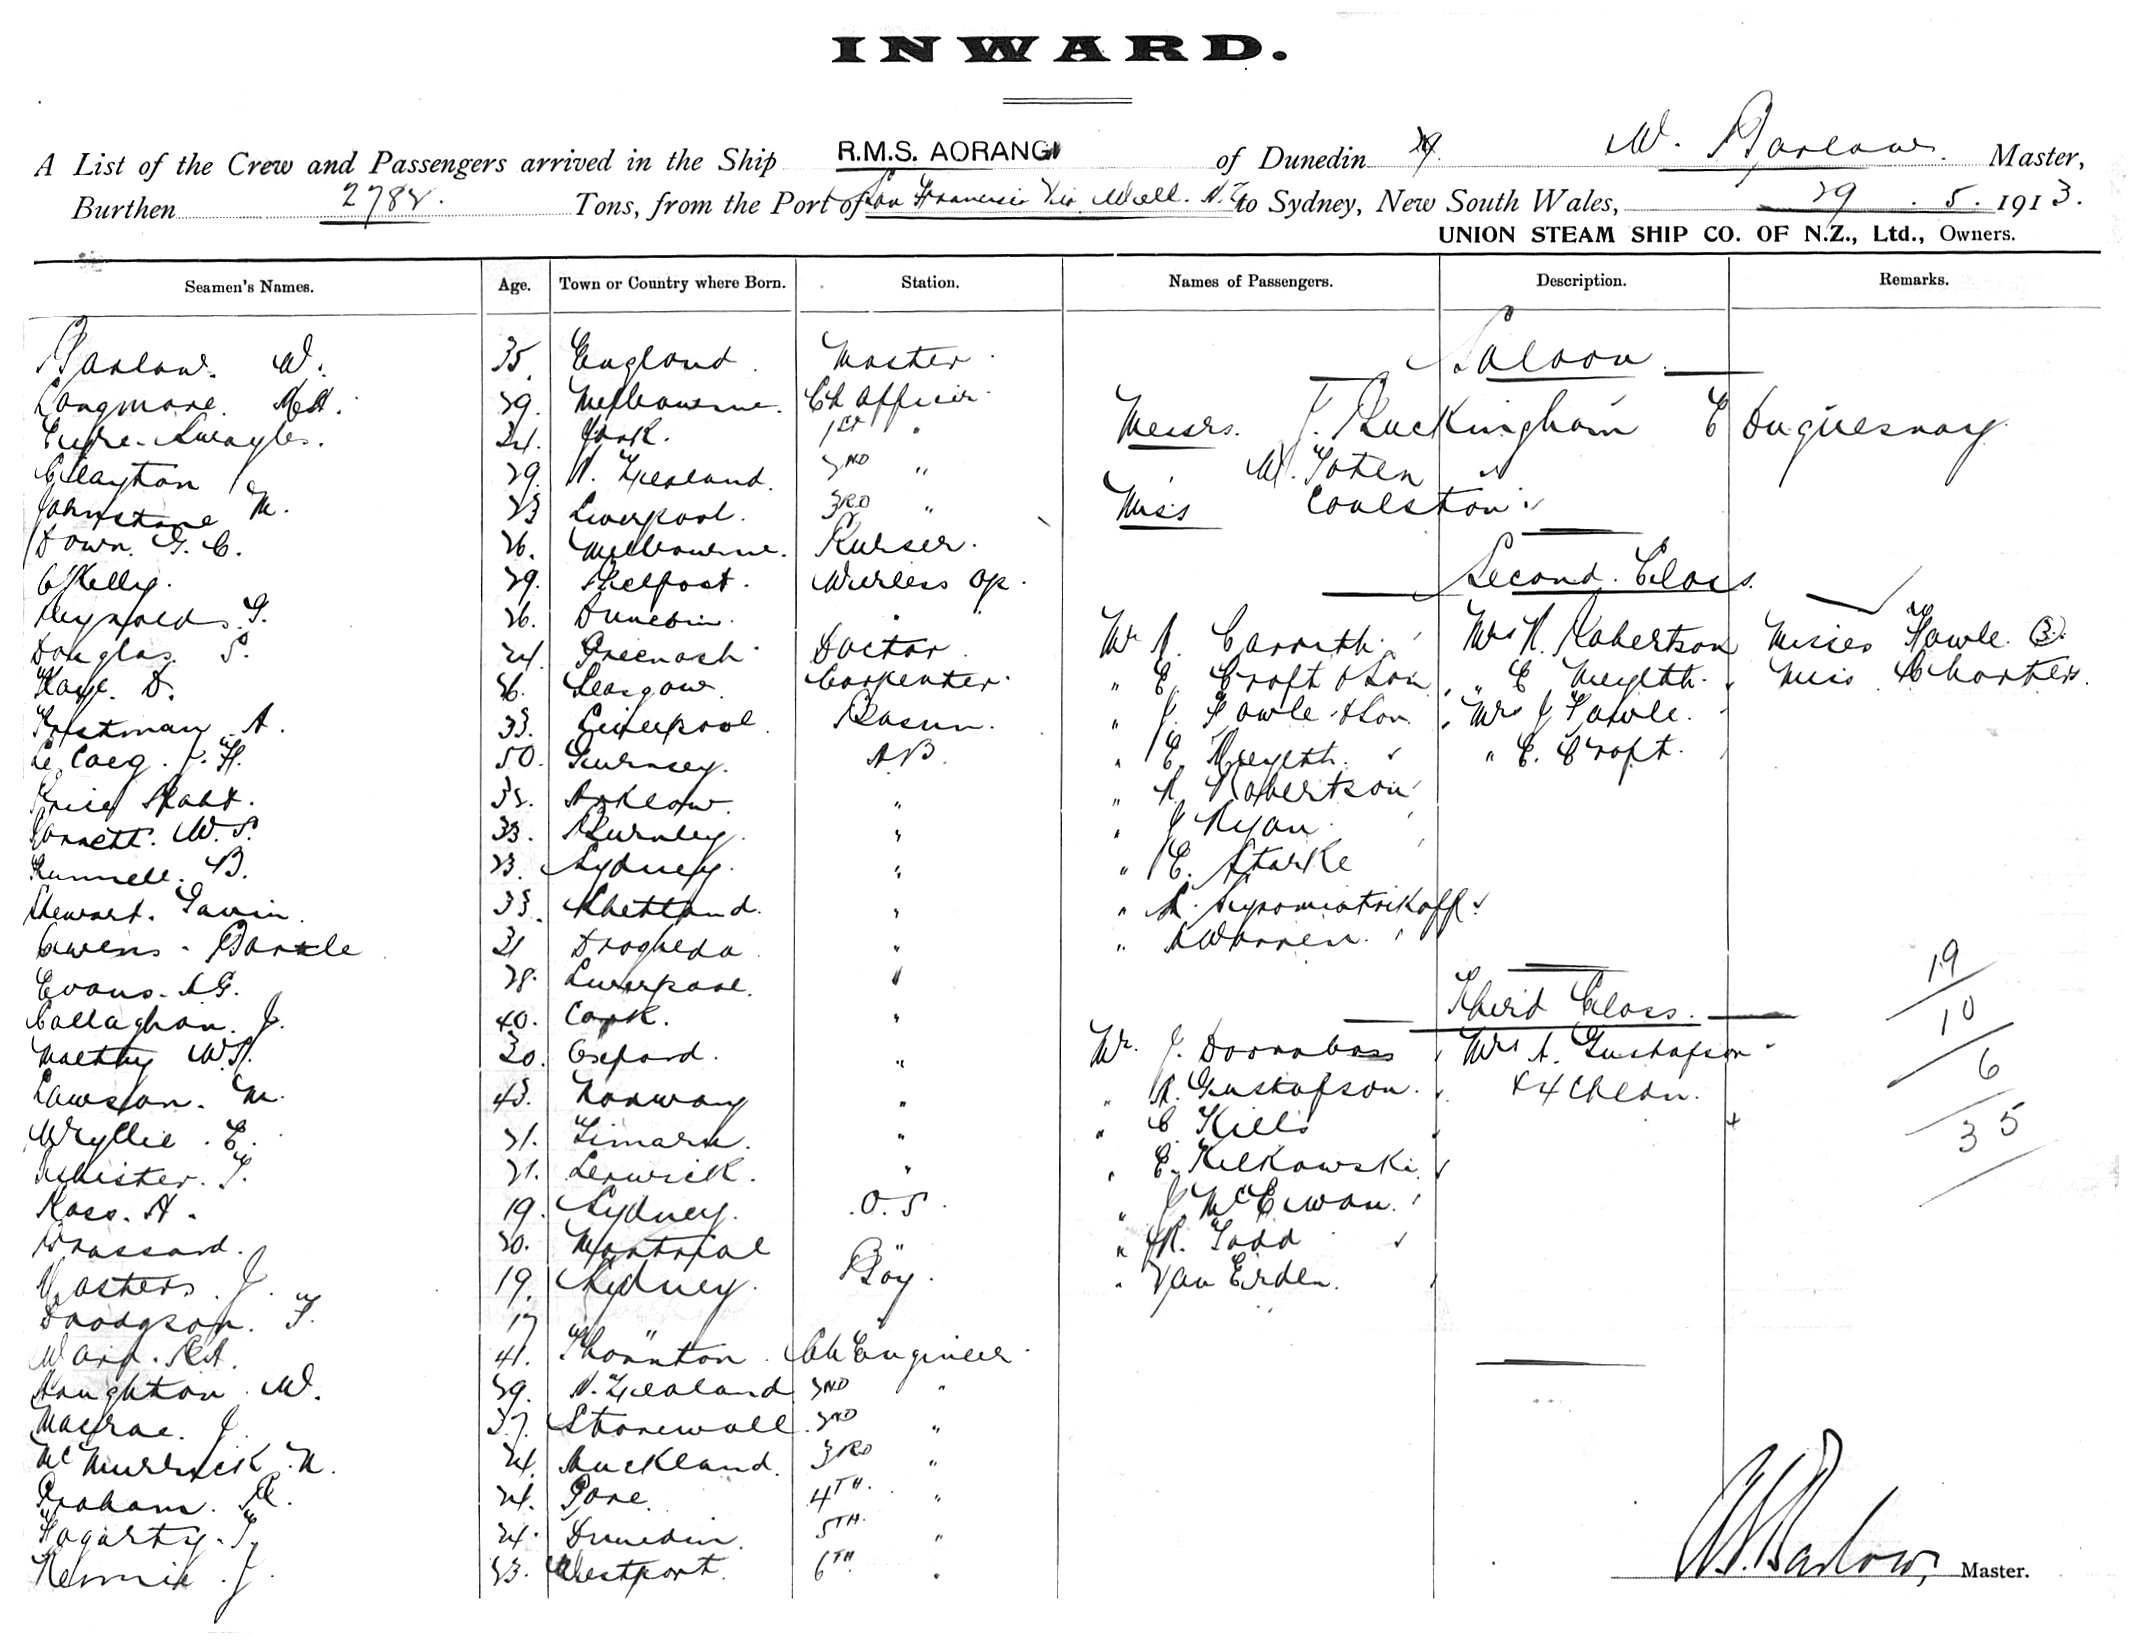 INWARD.
A List of the Crew and Passengers arrived in the Ship R.M.S. AORANGI of Dunedin W. Barlow Master,
Burthen 2782. Tons, from the Port of San Francisco Via Well. N.Z. to Sydney, New South Wales, 29 . 5 . 1913.
UNION STEAM SHIP CO. OF N.Z., Ltd., Owners.
Seamen's Names. Age. Town or Country where Born. Station. Names of Passengers. Description. Remarks.
Saloon
Barlow. W. 35. England. Master
Longmore. 29. Melbourne. Ch Officer.
Messrs. F. Buckingham E Duquesnay
Eyre-Swayles. 24. York. 1st "
Clayton 29. N. Zealand. 2ND "
W. Toten
Johnstone M. 23 Liverpool. 3RD "
Miss Coulston
Down. G. C. 26. Melbourne. Purser.
Second. Class.
O'Kelly. 29. Belfast. Wireless Op.
Reynolds. G. 26. Dunedin. "
Mr A. Carrith. Mrs R. Robertson Misses Fowle (3).
Douglas S. 24. Greenock Doctor
" E. Croft & Son " E Meyth. Miss Charters.
Kaye. D. 26. Glasgow. Carpenter.
" J. Fowle & Son. Mrs J Fowle.
Postman A. 33. Liverpool Bosun.
" E. " E. Croft.
Le Cocq. J. H. 50. Guernsey. AB.
" R Robertson
Price Robt. 32. Arklow. "
" J Ryan
W. S. 33. Burnley. "
" E. Starke
B. 23. Sydney. "
Stewart. Gavin. 33. Shetland. "
Owens - Barkle 31 Drogheda "
" A Warren.
Evans. A G. 28. Liverpool. "
19
Third Class.
Callaghan. J. 40. Cork. "
10
Maltby W.S. 30. Oxford. "
Mr. J. Doornboss Mrs A. Gustafson
6
Lawson. M. 43. Norway "
" A. Gustafson. & 4 Chldn.
35
Wyllie. E. 21. Timaru. "
" C Kills
T. 21. Lerwick. "
" E. Kilkowski
Ross. A. 19. Sydney. O. S.
" J McEwan.
Brassard. 20. Montreal "
" R. Todd
Masters. J. 19. Sydney. Boy.
" Van Erden.
Dodgson. F. 17 "
Ward. R A. 41. Thornton. Ch Engineer.
Houghton. W. 29. N. Zealand 2ND "
Macrae. J. 37. Stonewall. 2ND "
McMurrick N. 24. Auckland. 3RD "
Graham. R. 24. Gore. 4TH. "
Fogarty. T. 24. Dunedin. 5TH. "
Rennie. J. 23. Westport. 6TH "
W. Barlow, Master.